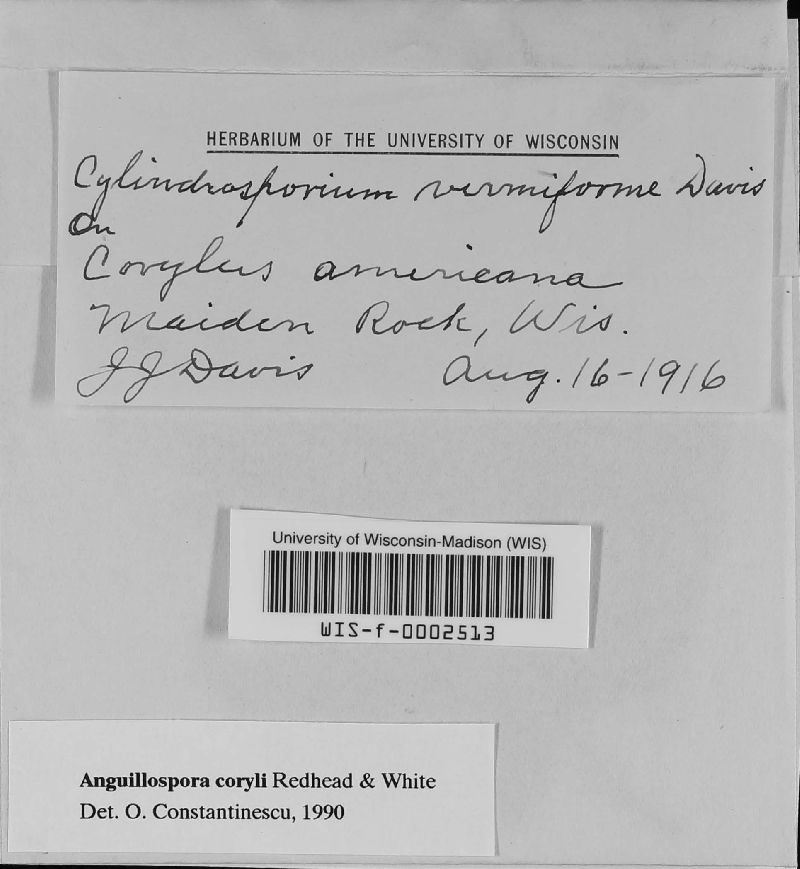 HERBARIUM OF THE UNIVERSITY OF WISCONSIN
Cylindrosporium vermiforme Davis
On
Corylus americana
Maiden Rock, Wis.
JJ Davis Aug. 16-1916
University of Wisconsin-Madison (WIS)
WIS-f-0002513
Anguillospora coryli Redhead & White
Det. O. Constantinescu, 1990